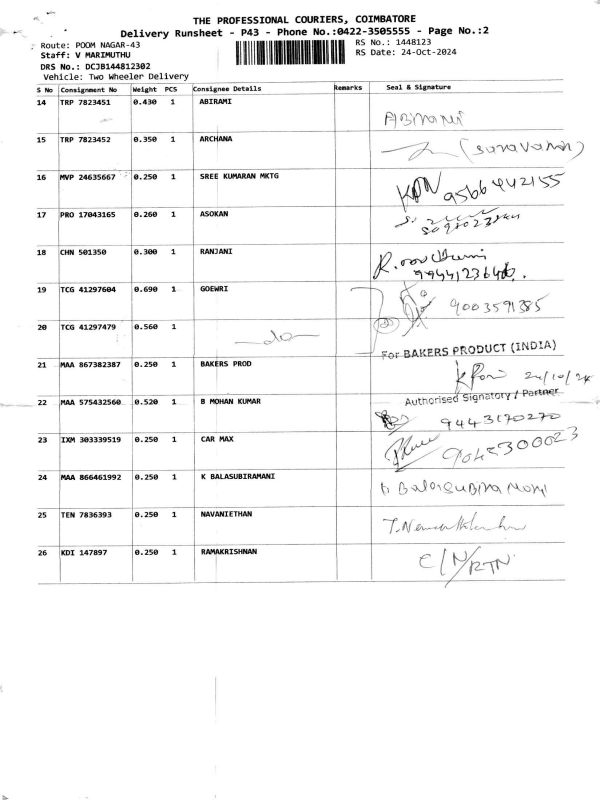 THE PROFESSIONAL COURIERS, COIMBATORE
Delivery Runsheet - P43 - Phone No.:0422-3505555 - Page No.:2
Route: POOM NAGAR-43 RS No.: 1448123
Staff: V MARIMUTHU RS Date: 24-Oct-2024
DRS No.: DCJB144812302
Vehicle: Two Wheeler Delivery
S No Consignment No Weight PCS Consignee Details Remarks Seal & Signature
14 TRP 7823451 0.430 1 ABIRAMI
15 TRP 7823452 0.350 1 ARCHANA (Saravanan)
16 MVP 24635667 0.250 1 SREE KUMARAN MKTG 9566442155
17 PRO 17043165 0.260 1 ASOKAN
18 CHN 501350 0.300 1 RANJANI
19 TCG 41297604 0.690 1 GOEWRI 9003591385
20 TCG 41297479 0.560 1 -do-
For BAKERS PRODUCT (INDIA)
21 MAA 867382387 0.250 1 BAKERS PROD 24/10/24
Authorised Signatory / Partner
22 MAA 575432560 0.520 1 B MOHAN KUMAR 9443170270
23 IXM 303339519 0.250 1 CAR MAX 9042300023
24 MAA 866461992 0.250 1 K BALASUBIRAMANI
25 TEN 7836393 0.250 1 NAVANIETHAN
26 KDI 147897 0.250 1 RAMAKRISHNAN C/N/RTN